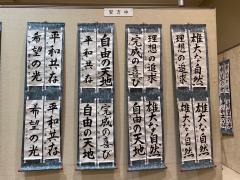 賢友中
雄大な自然
理想の追求
完成の喜び
自由の天地
平和共存
平和共存
希望の光
雄大な自然
雄大な自然
完成の喜び
自由の天地
自由の天地
平和共存
平和共存
希望の光